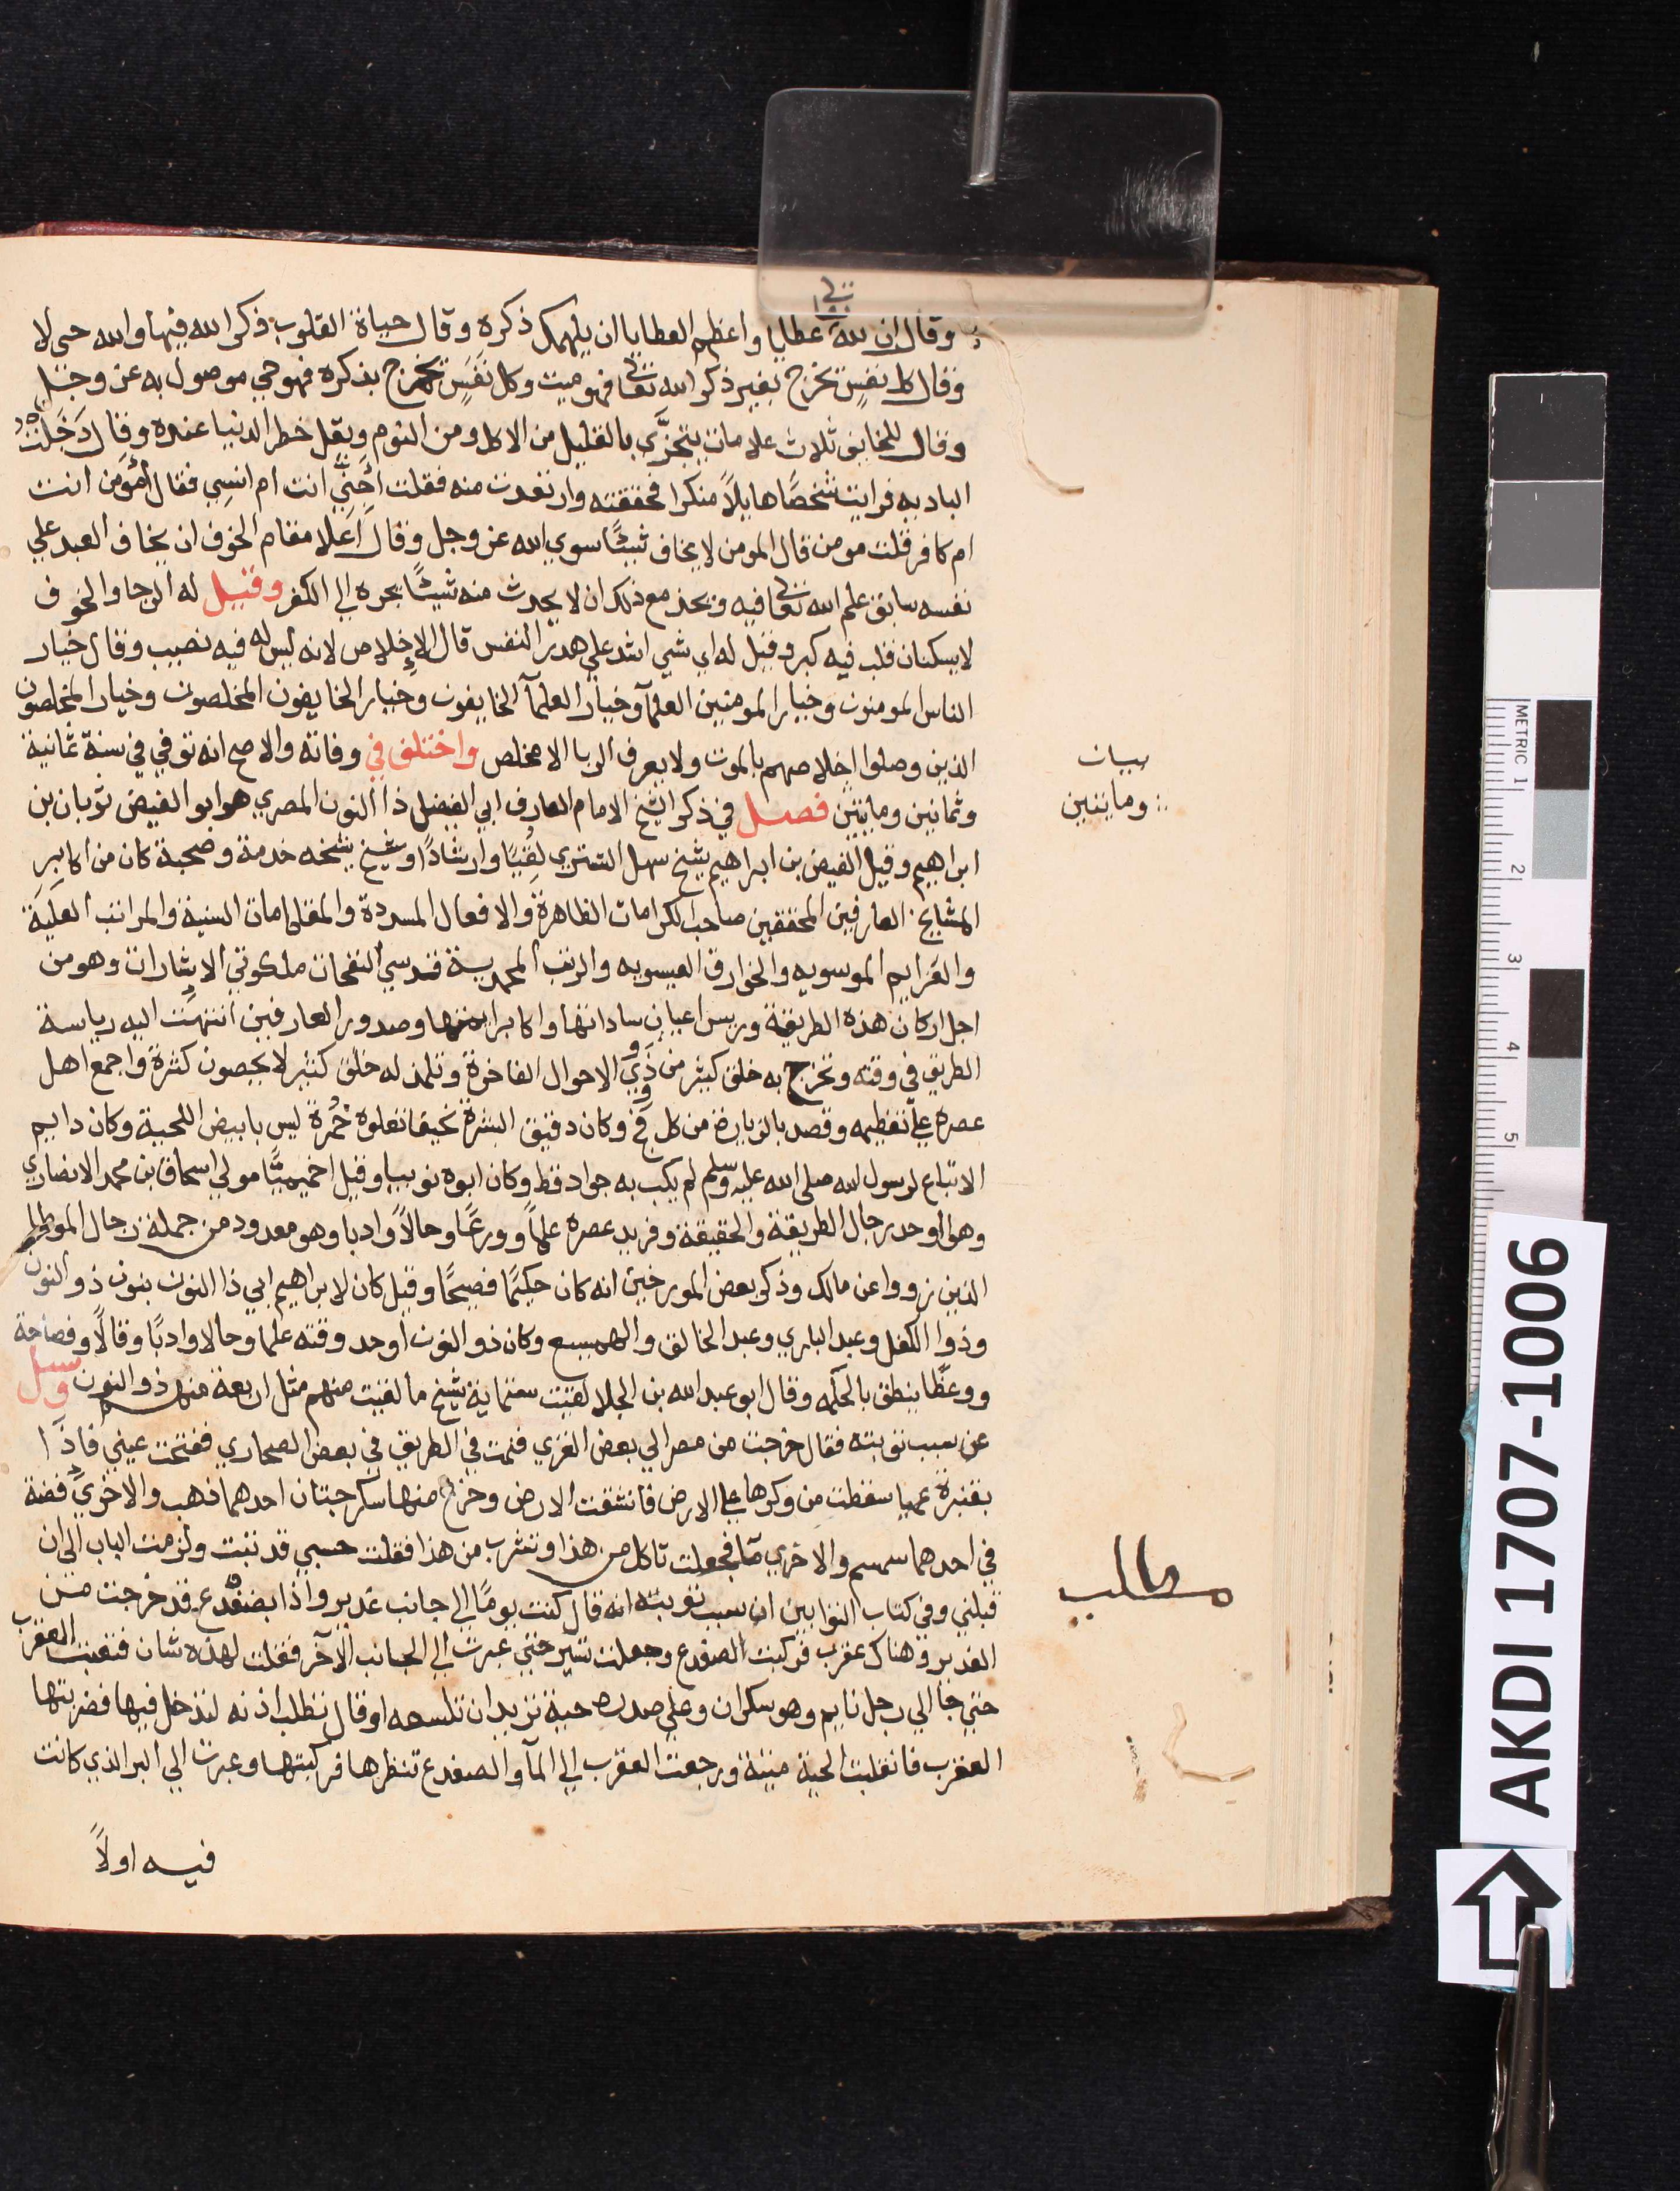 وقال ان لله تعالى عطايا واعظم العطايا ان يلهمك ذكره وقال حياة القلوب ذكر الله فيها والله حي لا
وقال كل نفسٍ تخرج بغير ذكر الله تعالى فهو ميت وكل نَفَسٍ تخرج بذكره فهو حي موصول به عز وجل
وقال للخايف ثلاث علامات يتجزّي بالقليل من الاكل ومن النوم ويقل خطر الدنيا عنده وقال دَخَلتُ
الباديه فرايت شخصًا هايلاً منكرا فحققته وارتعدت منه فقلت أجِنِّي انت ام انسِي فقال أمُؤمن انت
ام كافر قلت مومن قال المومن لا يخاف شيئًا سوي الله عز وجل وقال اعلا مقام الخوف ان يخاف العبد علي
نفسه سابق علم الله تعالى فيه ويحذر مع ذلك ان لا يحدث منه شيئًا يجره الي الكفر وقيل له الرجا والخوف
لا يسكنان قلب فيه كبر وقيل له اي شي اشد علي هدر النفس قال الإخلاص لانه ليس له فيه نصيب وقال خيار
الناس المومنون وخيار المومنين العلمآ وخيار العلمآ الخايفون وخيار الخايفون المخلصون وخيار المخلصون
الذين وصلوا اخلاصهم بالموت ولا يعرف الريا الا مخلص واختلف في وفاته والاصح انه توفي في سنة ثمانية
وثمانين ومايتين فصل في ذكر الشيخ الامام العارف ابي الفضل ذا النون المصري هو ابو الفيض ثوبان بن
ابراهيم وقيل الفيض بن ابراهيم شيخ سهل التستري لقيًا وارشادًا وشيخ شيخه خدمة وصحبة كان من اكابر
المشايخ العارفين المحققين صاحب الكرامات الظاهرة والافعال المسددة والمقامات السنية والمراتب العلية
والعزايم الموسويه والخوارق العيسويه والرتب المحمدية قدسي النفحات ملكوتي الاشارات وهو من
اجل اركان هذه الطريقة وريس اعيان ساداتها واكابر ايمتها وصدور العارفين انتهت اليه رياسة
الطريق في وقته وتخرج به خلق كثير من ذوي الاحوال الفاخرة وتلمذ له خلق كثير لا يحصون كثرة واجمع اهل
عصره علي تعظيمه وقصد بالزياره من كل فج وكان دقيق البشرة نحيفا تعلوه حُمرة ليس بابيض اللحية وكان دايم
الاتباع لرسول الله صلى الله عليه وسلم لم يكب به جواد قط وكان ابوه نوبيا وقيل اخميميًا مولي اسحاق بن محمد الانصاري
وهو اوحد رجال الطريقة والحقيقة وفريد عصره علمًا وورعًا وحالاً وادبا وهو معدود من جملة رجال الموطا
الذين رووا عن مالك وذكر بعض المورخين انه كان حكيمًا فصيحًا وقيل كان لابراهيم ابي ذا النون بنون ذو النون
وذوا الكفل وعبد الباري وعبد الخالق والهميسع وكان ذو النون اوحد وقته علما وحالا وادبًا وقالاً وفصاحة
ووعظًا ينطق بالحكمه وقال ابو عبد الله بن الجلا لقيت ستماية شيخ ما لقيت منهم مثل اربعة منهم ذو النون وسيل
عن سبب توبته فقال خرجت من مصر الي بعض القري فنمت في الطريق في بعض الصحاري ففتحت عيني فاذا
بقنبرة عميا سقطت من وكرها علي الارض فانشقت الارض وخرج منها سكرجتان احدهما ذهب والاخري فضة
في احدهما سمسم والاخري مآ فجعلت تاكل من هذا وتشرب من هذا فقلت حسبي قد تبت ولزمت الباب الي ان
قبلني وفي كتاب التوابين ان سبب توبته انه قال كنت يومًا الي جانب غدير واذا بضفدع قد خرجت من
الغدير وهناك عقرب فركبت الضفدع وجعلت تسير حتي عبرت الي الجانب الآخر فقلت لهذه شان فتتبعت العقرب
حتي جا الي رجل نايم وهو سكران وعلي صدره حية تريد ان تلسعه او قال تطلب اذنه لتدخل فيها فضربتها
العقرب فانقلبت الحية ميتة ورجعت العقرب الي المآ والضفدع تنظرها فركبتها وعبرت الي البر الذي كانت
فيه اولاً
بيان
ومايتين
مطلب
METRIC 1 2 3 4 5
AKDI 1707-1006